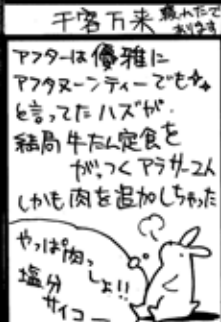 千客万来 疲れたで
あります
アフターは優雅に
アフタヌーンティーでも
と言ってたハズが
結局牛たん定食を
がっつくアラサー2人
しかも肉を追加しちゃった
やっぱ肉っ
しょ!!
塩分
サイコー